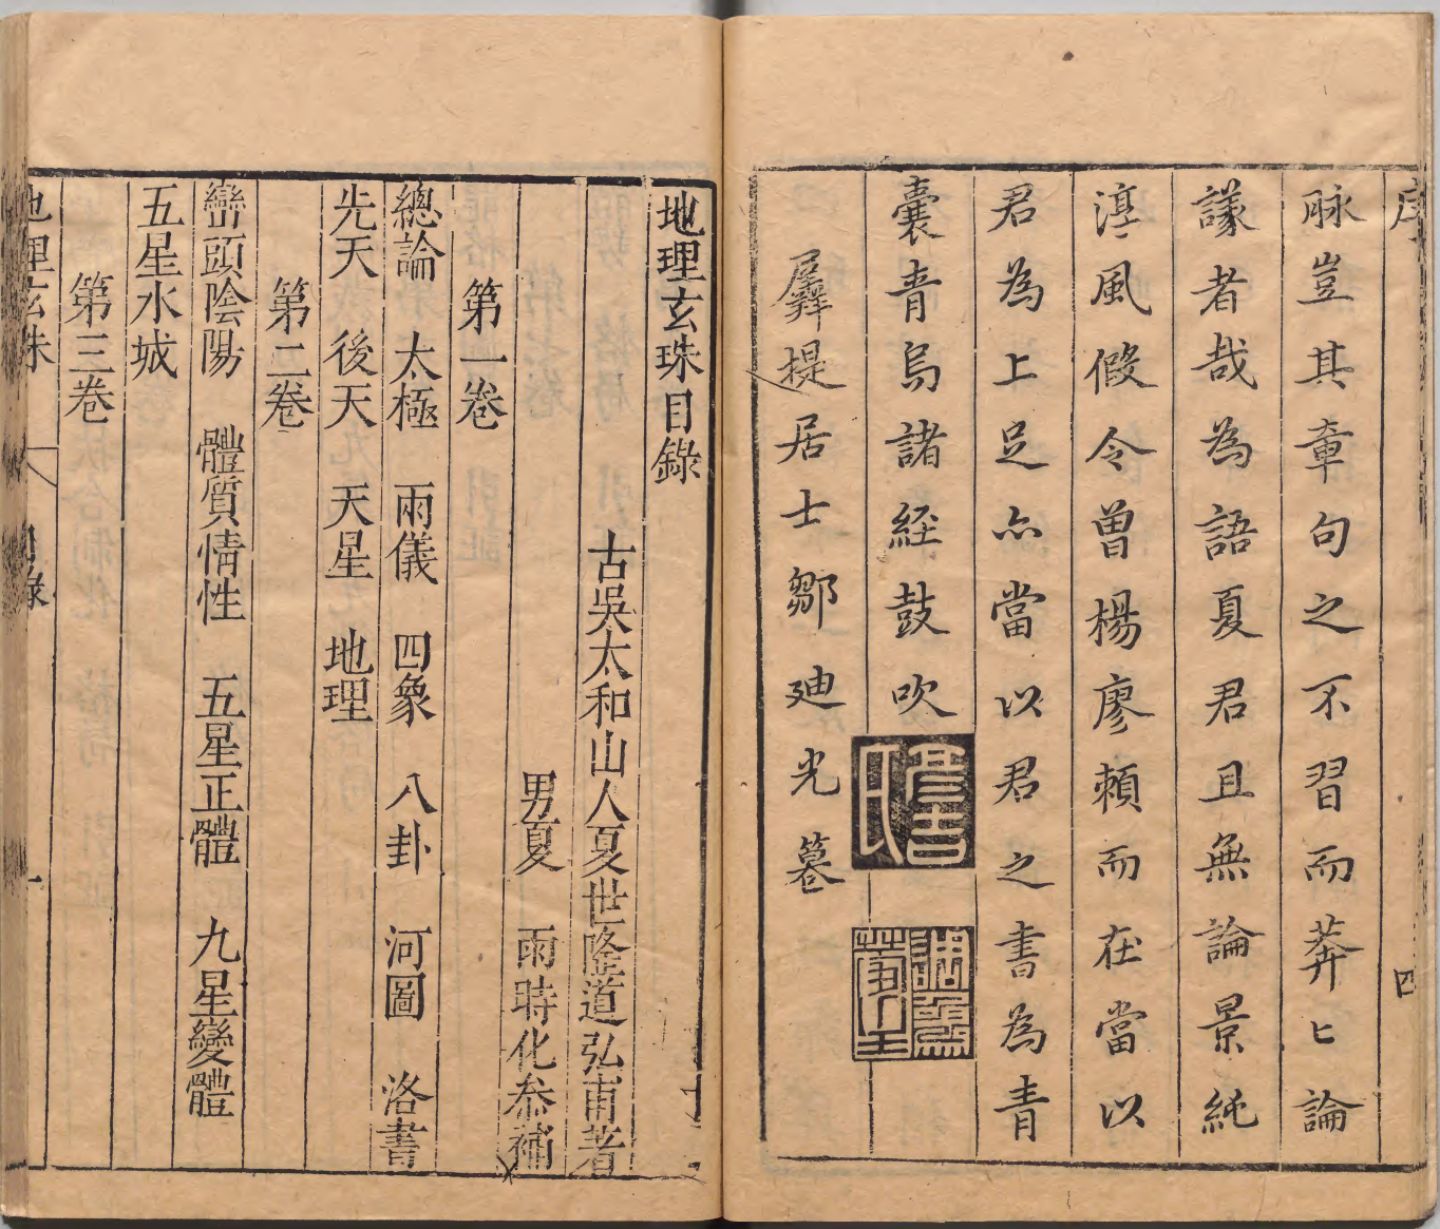 序
四
脉豈其章句之不習而莽匕論
議者哉為語夏君且無論景純
淳風假令曽楊廖賴而在當以
君為上足亦當以君之書為青
囊青烏諸經鼓吹
居士鄒迪光
地理玄珠目錄
古吳太和山人夏世隆道弘甫著
男夏 雨時化叅補
第一卷
總論 太極 兩儀 四象 八卦 河圖 洛書
先天 後天 天星 地理
第二卷
巒頭陰陽 體質情性 五星正體 九星變體
五星水城
第三卷
地理玄珠
目錄
一